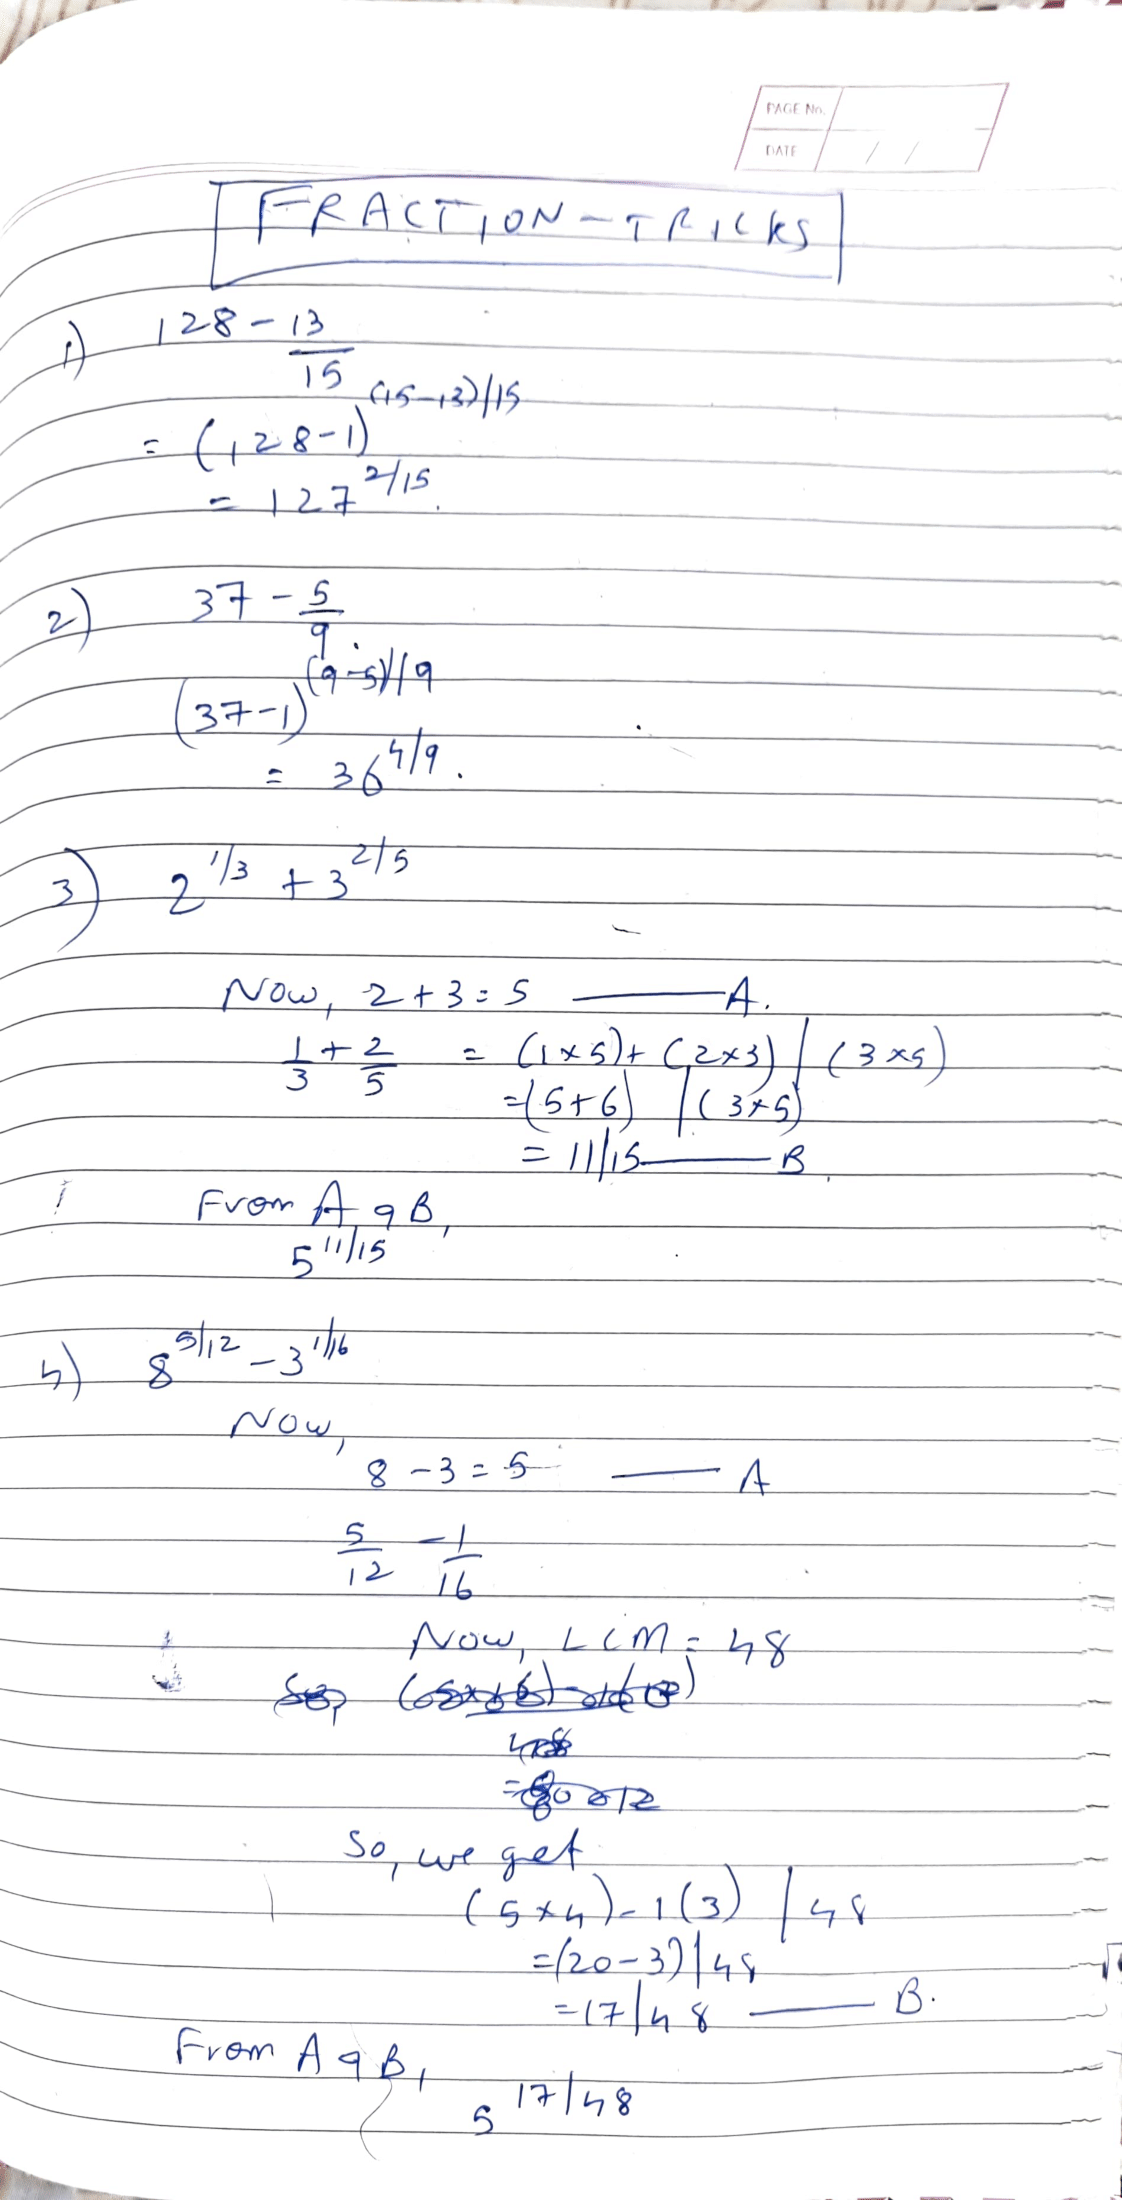 PAGE No.
DATE / /
FRACTION-TRICKS
1) 128 - 13/15
= (128-1) (15-13)/15
= 127 2/15.
2) 37 - 5/9
(37-1) (9-5)/9
= 36 4/9.
3) 2 1/3 + 3 2/5
Now, 2+3=5 — A.
1/3 + 2/5 = (1x5)+(2x3) / (3x5)
=(5+6) / (3x5)
= 11/15 — B
From A & B,
5 11/15
4) 8 5/12 - 3 1/16
Now,
8-3=5 — A
5/12 - 1/16
Now, LCM = 48
So, we get
(5x4)-1(3) / 48
=(20-3)/48
=17/48 — B.
From A & B,
5 17/48